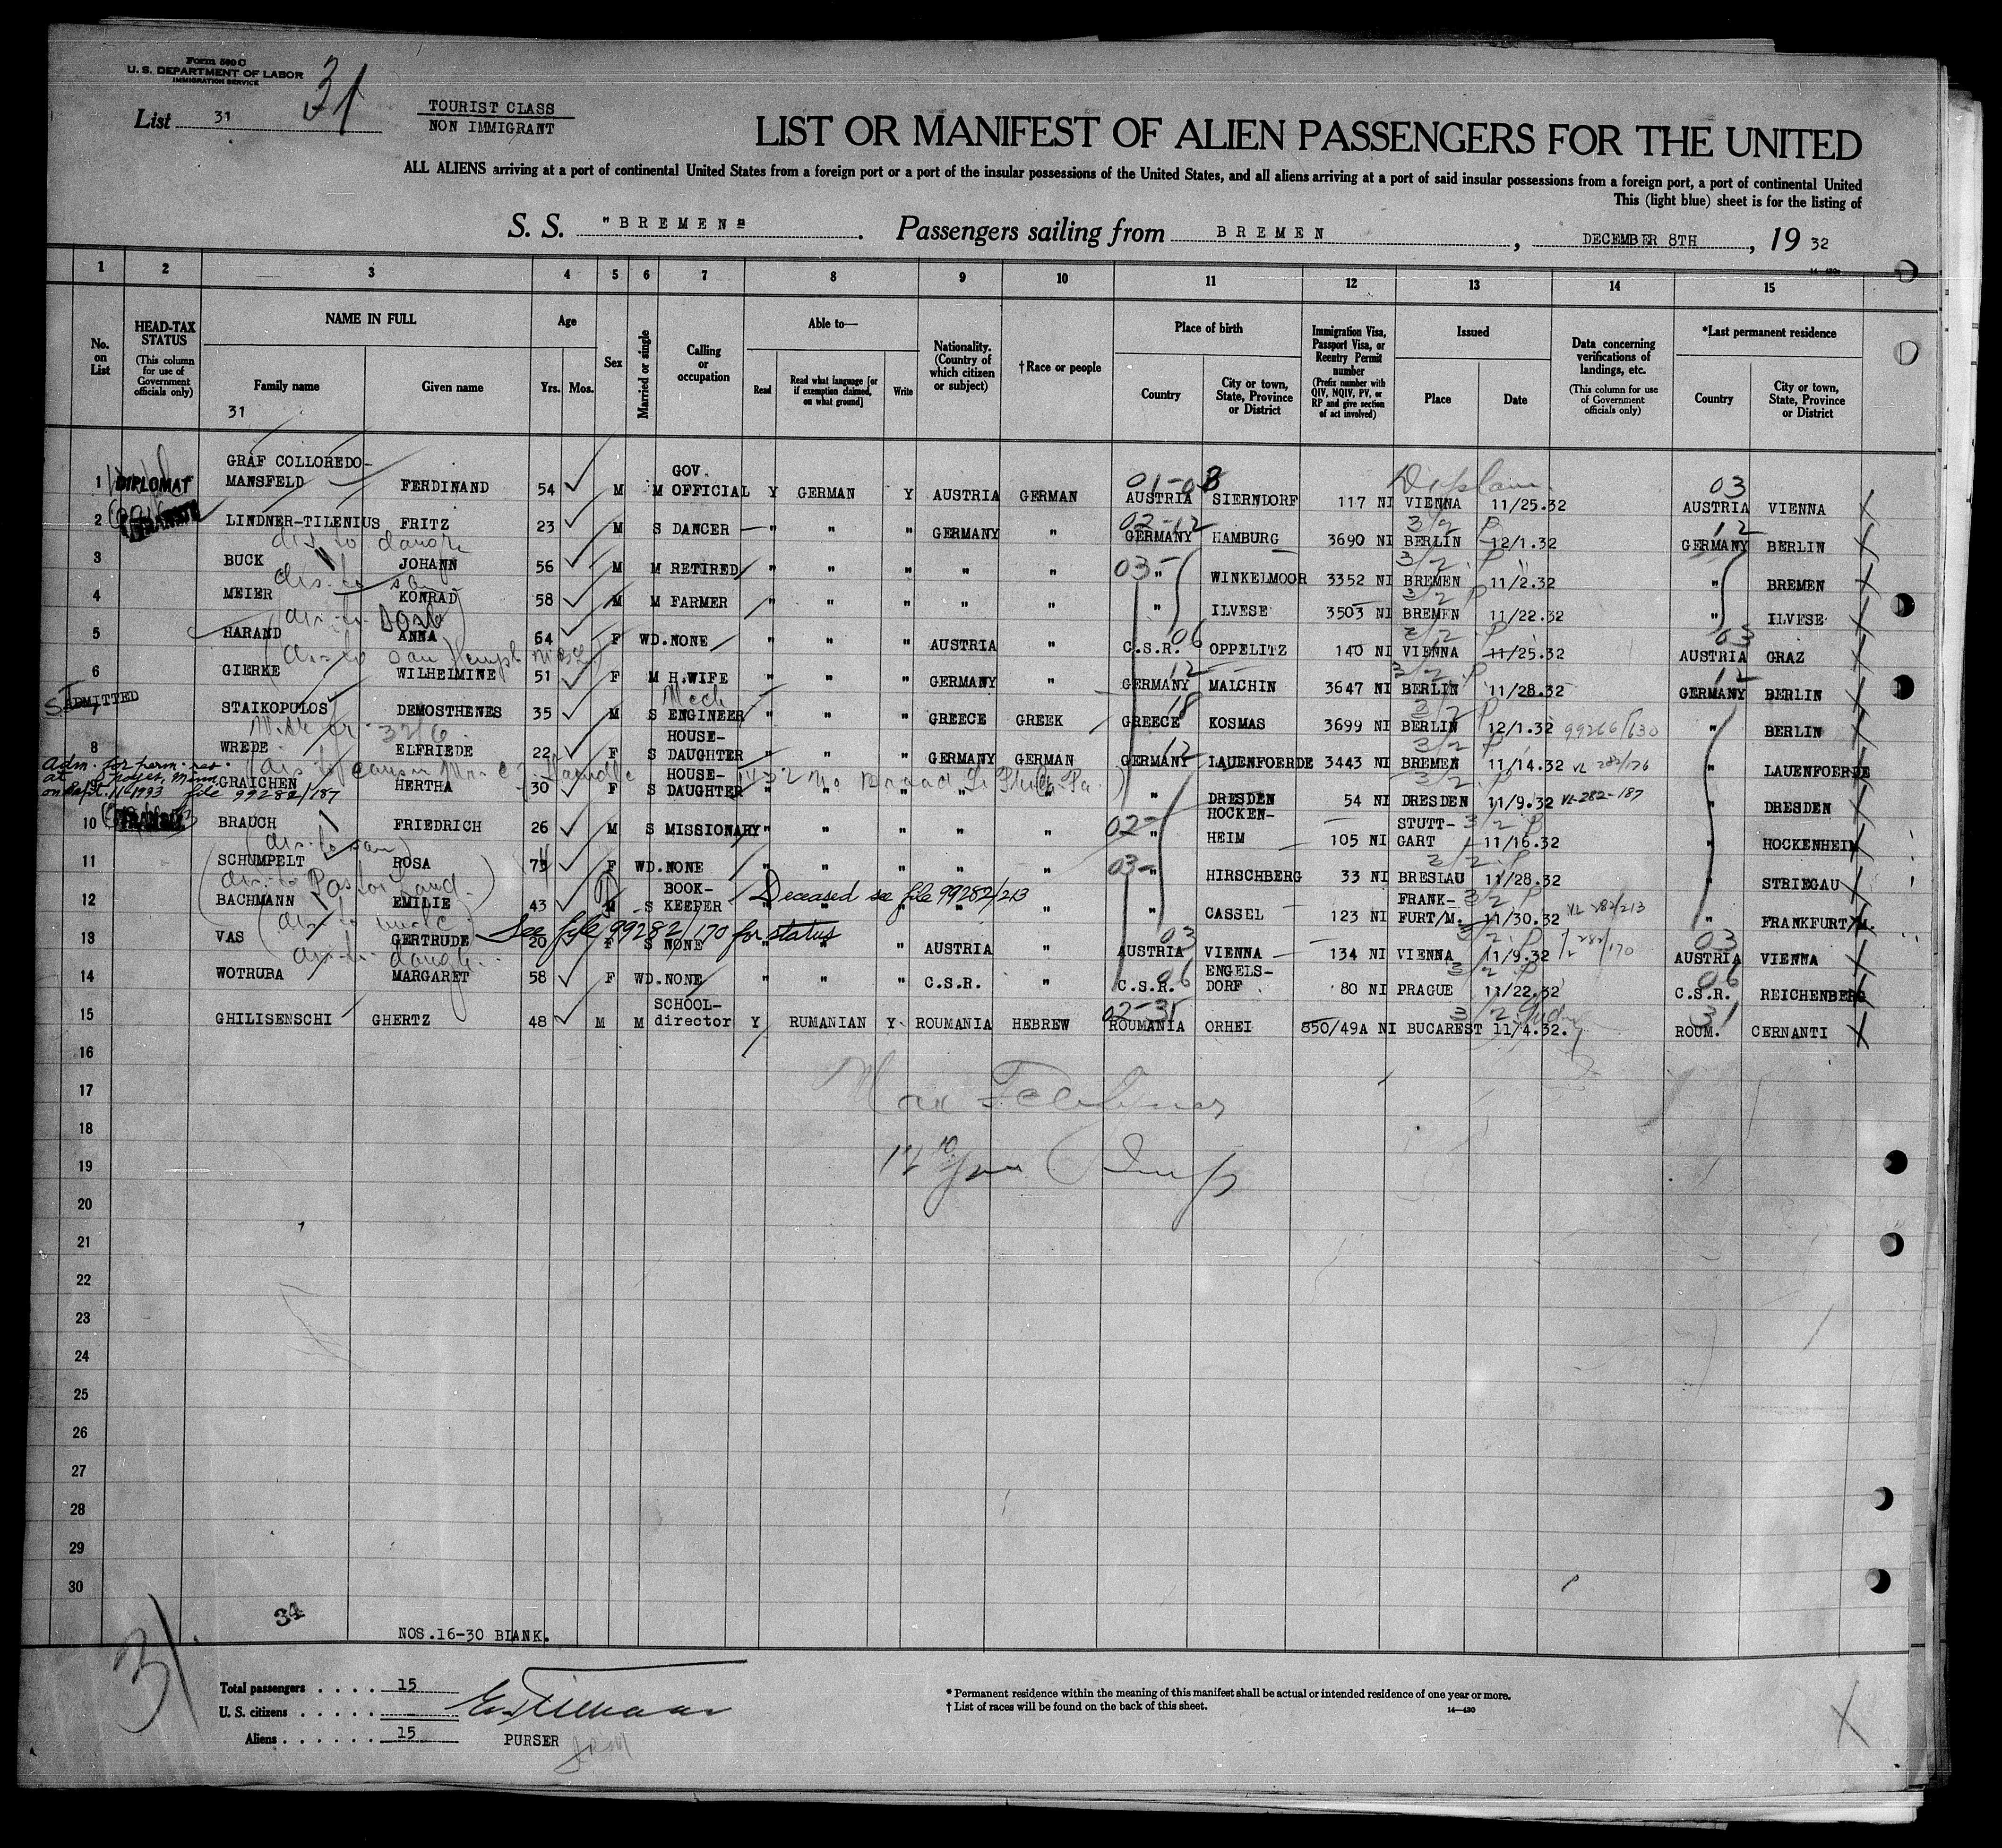 Form 500 C
U. S. DEPARTMENT OF LABOR
IMMIGRATION SERVICE
List 31
31
TOURIST CLASS
NON IMMIGRANT
LIST OR MANIFEST OF ALIEN PASSENGERS FOR THE UNITED
ALL ALIENS arriving at a port of continental United States from a foreign port or a port of the insular possessions of the United States, and all aliens arriving at a port of said insular possessions from a foreign port, a port of continental United
This (light blue) sheet is for the listing of
S. S. "BREMEN". Passengers sailing from BREMEN, DECEMBER 8TH, 19 32
14—430a
1 2 3 4 5 6 7 8 9 10 11 12 13 14 15
No. on List
HEAD-TAX STATUS (This column for use of Government officials only)
NAME IN FULL
Family name Given name
31
Age
Yrs. Mos.
Sex
Married or single
Calling or occupation
Able to—
Read
Read what language [or if exemption claimed, on what ground]
Write
Nationality. (Country of which citizen or subject)
†Race or people
Place of birth
Country
City or town, State, Province or District
Immigration Visa, Passport Visa, or Reentry Permit number (Prefix number with QIV, NQIV, PV, or RP and give section of act involved)
Issued
Place Date
Data concerning verifications of landings, etc. (This column for use of Government officials only)
*Last permanent residence
Country
City or town, State, Province or District
1 DIPLOMAT GRAF COLLOREDO-MANSFELD FERDINAND 54 M M GOV. OFFICIAL Y GERMAN Y AUSTRIA GERMAN AUSTRIA SIERNDORF 117 NI VIENNA 11/25.32 03 AUSTRIA VIENNA
2 LINDNER-TILENIUS FRITZ 23 M S DANCER " " " GERMANY " 02-12 GERMANY HAMBURG 3690 NI BERLIN 12/1.32 12 GERMANY BERLIN
3 BUCK JOHANN 56 M M RETIRED " " " " " 03- " WINKELMOOR 3352 NI BREMEN 11/2.32 " BREMEN
4 MEIER KONRAD 58 M M FARMER " " " " " " ILVESE 3503 NI BREMEN 11/22.32 " ILVESE
5 HARAND ANNA 64 F WD. NONE " " " AUSTRIA " C.S.R. 06 OPPELITZ 140 NI VIENNA 11/25.32 03 AUSTRIA GRAZ
6 GIERKE WILHELMINE 51 F M H.WIFE " " " GERMANY " 12 GERMANY MALCHIN 3647 NI BERLIN 11/28.32 12 GERMANY BERLIN
ADMITTED STAIKOPULOS DEMOSTHENES 35 M S Mech ENGINEER " " " GREECE GREEK 18 GREECE KOSMAS 3699 NI BERLIN 12/1.32 99266/630 " BERLIN
8 WREDE ELFRIEDE 22 F S HOUSE-DAUGHTER " " " GERMANY GERMAN 12 GERMANY LAUENFOERDE 3443 NI BREMEN 11/14.32 VL 282/176 " LAUENFOERDE
Adm. for perm. res.
file 99282/187
GRAICHEN HERTHA 30 F S HOUSE-DAUGHTER " " " " " " DRESDEN 54 NI DRESDEN 11/9.32 VL-282-187 " DRESDEN
10 BRAUCH FRIEDRICH 26 M S MISSIONARY " " " " " 02- " HOCKEN-HEIM 105 NI STUTT-GART 11/16.32 " HOCKENHEIM
11 SCHUMPELT ROSA 73 F WD. NONE " " " " " 03- " HIRSCHBERG 33 NI BRESLAU 11/28.32 " STRIEGAU
Deceased see file 99282/213
12 BACHMANN EMILIE 43 S BOOK-KEEPER " " " " " " CASSEL 123 NI FRANK-FURT/M. 11/30.32 VL 282/213 " FRANKFURT/M.
See file 99282/170 for status
13 VAS GERTRUDE 20 F S NONE " " " AUSTRIA " 03 AUSTRIA VIENNA 134 NI VIENNA 11/9.32 03 AUSTRIA VIENNA
14 WOTRUBA MARGARET 58 F WD. NONE " " " C.S.R. " C.S.R. 06 ENGELS-DORF 80 NI PRAGUE 11/22.32 06 C.S.R. REICHENBERG
15 GHILISENSCHI GHERTZ 48 M M SCHOOL-director Y RUMANIAN Y ROUMANIA HEBREW 02-31 ROUMANIA ORHEI 850/49A NI BUCAREST 11/4.32. 31 ROUM. CERNANTI
16
17
18
19
20
21
22
23
24
25
26
27
28
29
30
34
NOS.16-30 BLANK.
31
Total passengers 15
U. S. citizens -
Aliens 15
PURSER
* Permanent residence within the meaning of this manifest shall be actual or intended residence of one year or more.
† List of races will be found on the back of this sheet.
14—430